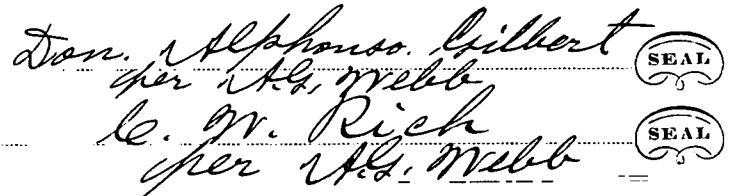 Don. Alphonso. Gilbert SEAL
per A.G. Webb
C. W. Rich SEAL
per A.G. Webb